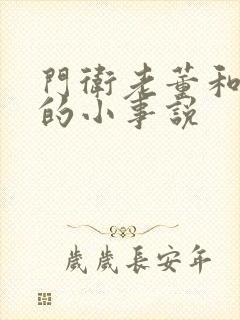 門衛老董和
的小事說
歲歲長安年